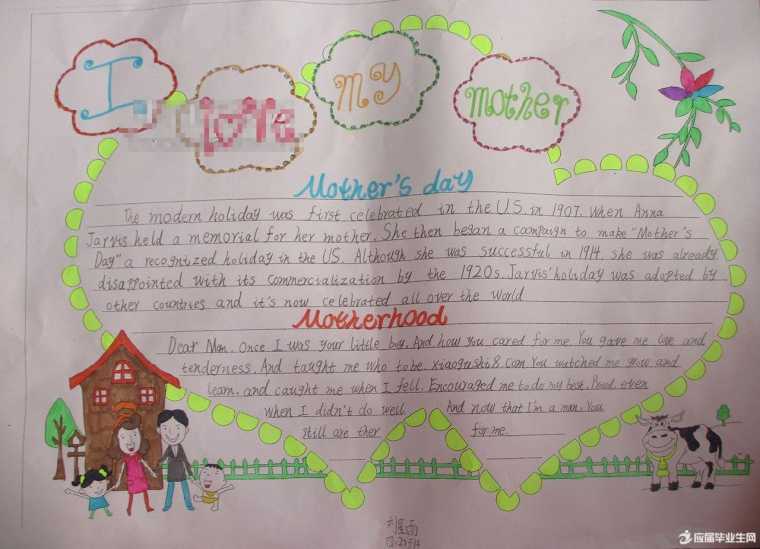 I love my mother
Mother's day
The modern holiday was first celebrated in the U.S. in 1907. When Anna
Jarvis held a memorial for her mother. She then began a campaign to make "Mother's
Day" a recognized holiday in the US. Although she was successful in 1914, she was already
disappointed with its commercialization by the 1920s. Jarvis' holiday was adopted by
other countries and it's now celebrated all over the world
Motherhood
Dear Mom. Once I was your little boy. And how you cared for me. You gave me love and
tenderness. And taught me who to be. xiaogushi8.com You watched me grow and
learn, and caught me when I fell. Encouraged me to do my best. Proud even
when I didn't do well And now that I'm a man. You
still are ther for me.
应届毕业生网